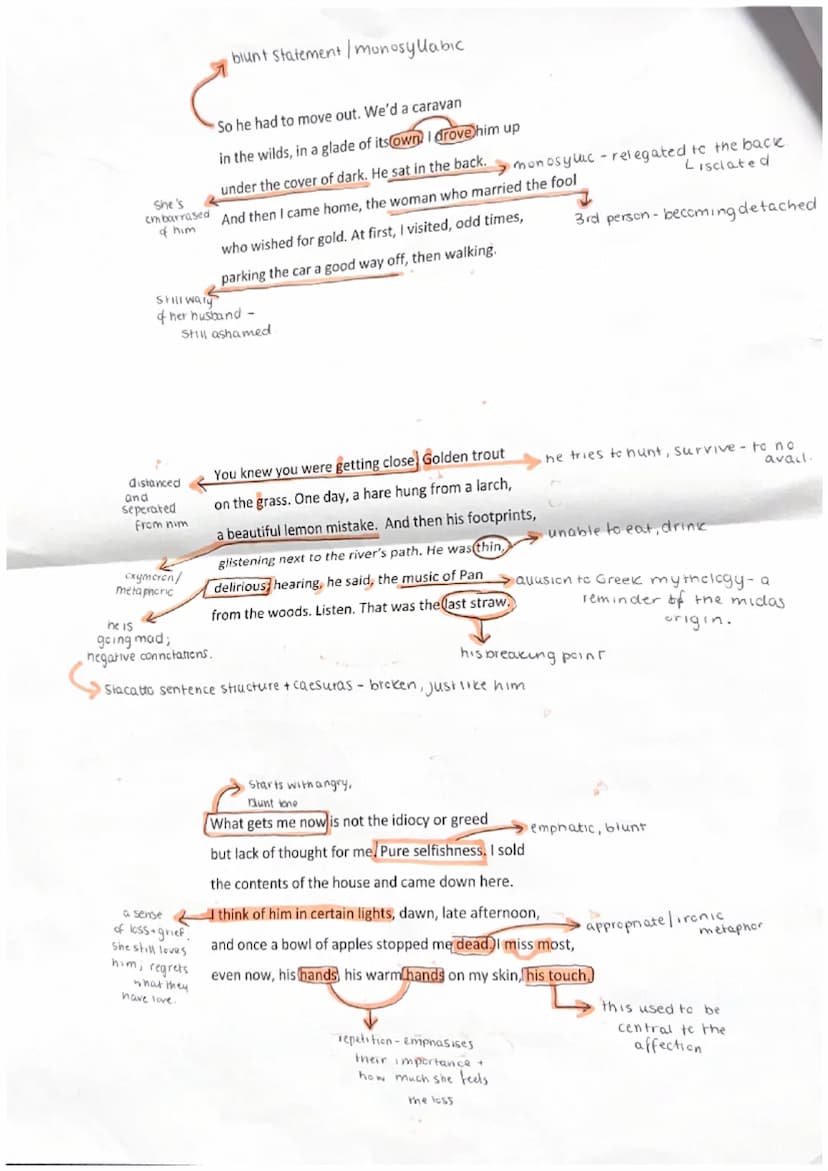 blunt statement / monosyllabic
So he had to move out. We'd a caravan
in the wilds, in a glade of its own. I drove him up
under the cover of dark. He sat in the back.
monosyllic - relegated to the back
↳ isolated
She's
embarrased
of him
And then I came home, the woman who married the fool
3rd person - becoming detached
who wished for gold. At first, I visited, odd times,
parking the car a good way off, then walking.
still wary
of her husband -
still ashamed
You knew you were getting close. Golden trout
he tries to hunt, survive - to no
avail.
distanced
and
seperated
from him
on the grass. One day, a hare hung from a larch,
a beautiful lemon mistake. And then his footprints,
unable to eat, drink
glistening next to the river's path. He was thin,
oxymoron/
metaphoric
delirious; hearing, he said, the music of Pan
allusion to Greek mythology - a
reminder of the midas
origin.
from the woods. Listen. That was the last straw.
he is
going mad;
negative connotations.
his breaking point
Stacatto sentence structure + caesuras - broken, just like him
Starts with angry,
blunt tone
What gets me now is not the idiocy or greed
emphatic, blunt
but lack of thought for me. Pure selfishness. I sold
the contents of the house and came down here.
I think of him in certain lights, dawn, late afternoon,
a sense
of loss + grief.
She still loves
him, regrets
what they
have love.
appropriate/ironic
metaphor
and once a bowl of apples stopped me dead. I miss most,
even now, his hands, his warm hands on my skin, his touch.
this used to be
central to the
affection
repetition - emphasises
their importance +
how much she feels
the loss